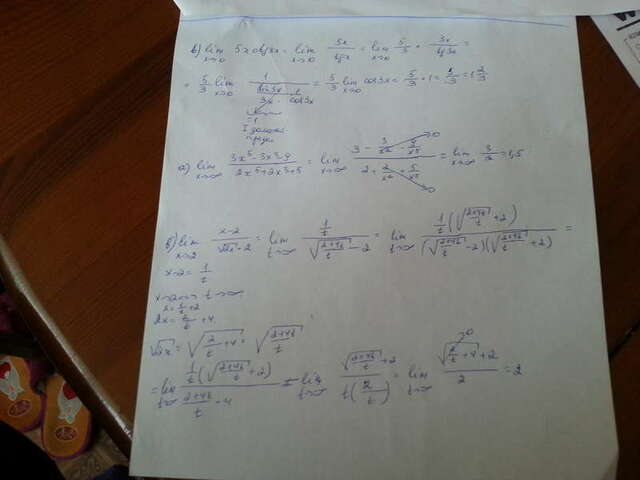 в) lim x→0 5x ctg3x = lim x→0 5x/tg3x = lim x→0 5/3 · 3x/tg3x =
= 5/3 lim x→0 1/(sin3x/3x · 1/cos3x) = 5/3 lim x→0 cos3x = 5/3 · 1 = 5/3 = 1 2/3
= 1
I
а) lim x→∞ (3x⁵-3x³-9)/(2x⁵+2x³+5) = lim x→∞ (3 - 3/x² - 9/x⁵ →0)/(2 + 2/x² + 5/x⁵ →0) = lim x→∞ 3/2 = 1,5
б) lim x→2 (x-2)/(√2x - 2) = lim t→∞ (1/t)/(√((2+4t)/t) - 2) = lim t→∞ (1/t(√((2+4t)/t) + 2))/((√((2+4t)/t) - 2)(√((2+4t)/t) + 2)) =
x-2 = 1/t
x→2 => t→∞
x = 1/t + 2
2x = 2/t + 4
√2x = √(2/t + 4) = √((2+4t)/t)
= lim t→∞ (1/t(√((2+4t)/t) + 2))/((2+4t)/t - 4) = lim t→∞ (√((2+4t)/t) + 2)/(t(2/t)) = lim t→∞ (√(2/t →0 + 4) + 2)/2 = 2